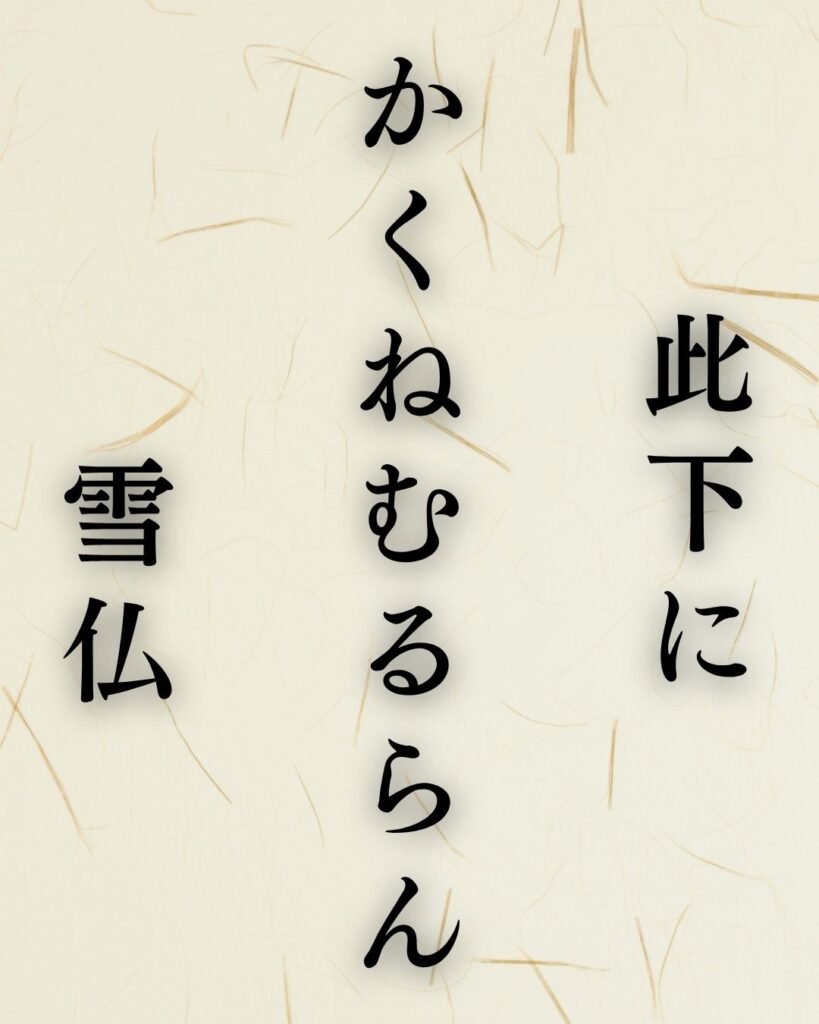 此下に
かくねむるらん
雪仏